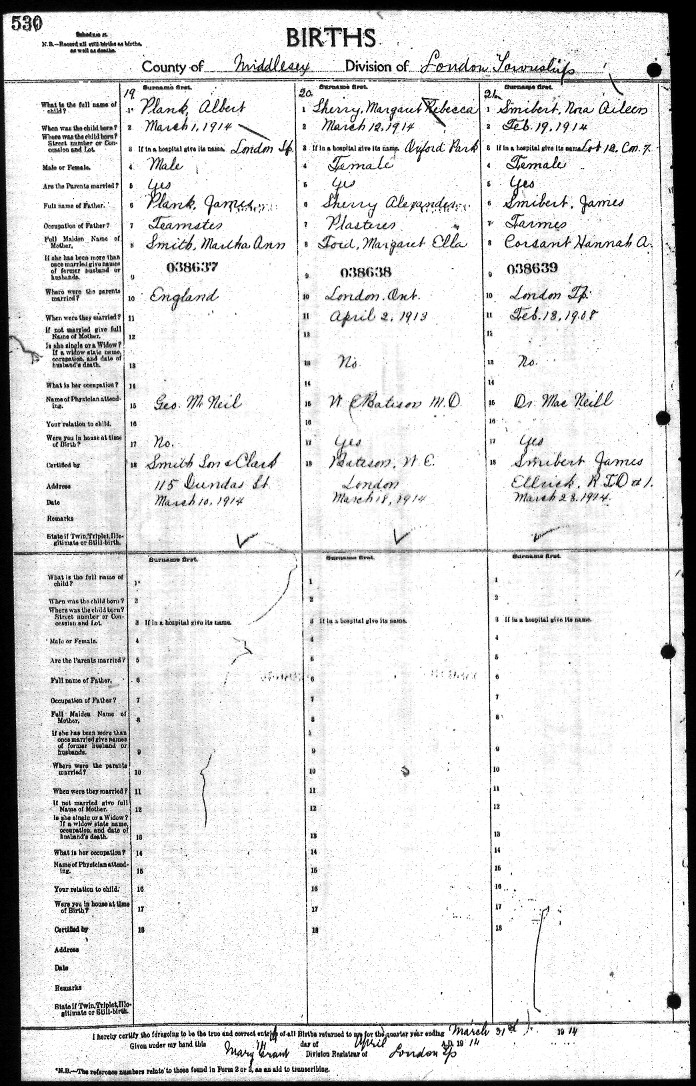 530
Schedule A.
N.B.—Record all still births as births, as well as deaths.
BIRTHS
County of Middlesex Division of London Township
19 20 21
Surname first. Surname first. Surname first.
What is the full name of child? 1 Plank, Albert 1 Sherry, Margaret Rebecca 1 Smibert, Nora Aileen
When was the child born? 2 March 1, 1914 2 March 12, 1914 2 Feb. 19, 1914
Where was the child born? Street number or Concession and Lot. 3 If in a hospital give its name. London Tp. 3 If in a hospital give its name. Oxford Park 3 If in a hospital give its name. Lot 12, Con. 7.
Male or Female. 4 Male 4 Female 4 Female
Are the Parents married? 5 Yes 5 Yes 5 Yes
Full name of Father. 6 Plank, James 6 Sherry Alexander 6 Smibert, James
Occupation of Father? 7 Teamster 7 Plasterer 7 Farmer
Full Maiden Name of Mother. 8 Smith, Martha Ann 8 Ford, Margaret Ella 8 Corsant Hannah A.
If she has been more than once married give names of former husband or husbands. 9 038637 9 038638 9 038639
Where were the parents married? 10 England 10 London. Ont. 10 London Tp.
When were they married? 11 11 April 2, 1913 11 Feb. 18, 1908
If not married give full Name of Mother. 12 12 12
Is she single or a Widow? If a widow state name, occupation, and date of husband's death. 13 13 No. 13 No.
What is her occupation? 14 14 14
Name of Physician attending. 15 Geo. McNeil 15 W E Bateson M.D. 15 Dr. Mac Neill
Your relation to child. 16 16 16
Were you in house at time of Birth? 17 No. 17 Yes 17 Yes
Certified by 18 Smith Son & Clark 18 Bateson, W E. 18 Smibert James
Address 115 Dundas St London R.F.D #1.
Date March 10, 1914 March 18, 1914 March 28, 1914.
Remarks
State if Twin, Triplet, Illegitimate or Still-birth.
Surname first. Surname first. Surname first.
What is the full name of child? 1 1 1
When was the child born? 2 2 2
Where was the child born? Street number or Concession and Lot. 3 If in a hospital give its name. 3 If in a hospital give its name. 3 If in a hospital give its name.
Male or Female. 4 4 4
Are the Parents married? 5 5 5
Full name of Father. 6 6 6
Occupation of Father? 7 7 7
Full Maiden Name of Mother. 8 8 8
If she has been more than once married give names of former husband or husbands. 9 9 9
Where were the parents married? 10 10 10
When were they married? 11 11 11
If not married give full Name of Mother. 12 12 12
Is she single or a Widow? If a widow state name, occupation, and date of husband's death. 13 13 13
What is her occupation? 14 14 14
Name of Physician attending. 15 15 15
Your relation to child. 16 16 16
Were you in house at time of Birth? 17 17 17
Certified by 18 18 18
Address
Date
Remarks
State if Twin, Triplet, Illegitimate or Still-birth.
I hereby certify the foregoing to be the true and correct entries of all Births returned to me for the quarter year ending March 31st 1914
Given under my hand this day of April A.D. 1914
Mary Grant Division Registrar of London Tp
*N.B.—The reference numbers relate to those found in Form 2 or 3, as an aid to transcribing.